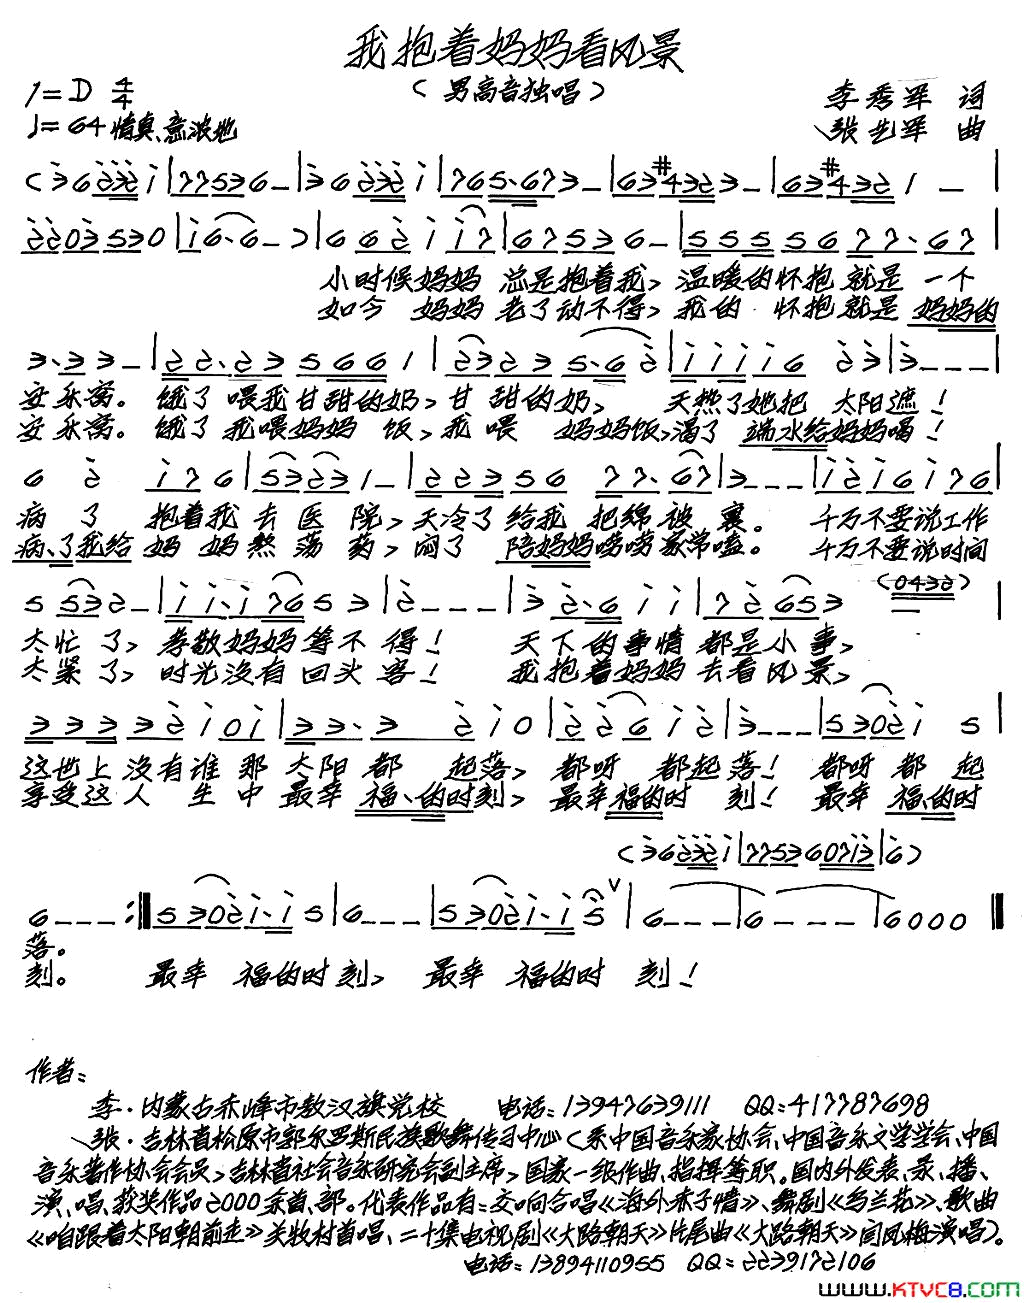 我抱着妈妈看风景
(男高音独唱)
1=D 4/4
李秀军 词
♩=64 情真、意浓地
张艺军 曲
小时候妈妈 总是抱着我, 温暖的怀抱 就是 一个
如今 妈妈 老了动不得, 我的 怀抱就是 妈妈的
安乐窝。 饿了 喂我甘甜的奶, 甘 甜的奶, 天热了她把 太阳遮!
安乐窝。 饿了 我喂妈妈 饭, 我喂 妈妈饭, 渴了 端水给妈妈喝!
病 了 抱着我 去 医 院, 天冷了 给我 把绵 被 裹。 千万不要说工作
病、了我给 妈 妈 熬 荡 药, 闷了 陪妈妈唠唠家常嗑。 千万不要说时间
太忙 了, 孝敬妈妈等不 得! 天下的事情 都是小事,
太紧 了, 时光没有 回头 客! 我抱着妈妈 去看风景,
这世上 没有谁 那 太阳 都 起落, 都呀 都起 落! 都呀 都 起
享受这 人 生 中 最幸 福、的时刻, 最幸福的时 刻! 最幸 福、的时
落。
刻。 最幸 福的时 刻, 最幸 福的时 刻!
作者:
李·内蒙古赤峰市敖汉旗党校 电话:13947639111 QQ:417787698
张·吉林省松原市郭尔罗斯民族歌舞传习中心(系中国音乐家协会、中国音乐文学学会、中国
音乐著作协会会员, 吉林省社会音乐研究会副主席, 国家一级作曲、指挥等职。国内外发表、录、播、
演、唱、获奖作品2000余首、部。代表作品有:交响合唱《海外赤子情》、舞剧《乌兰花》、歌曲
《咱跟着太阳朝前走》关牧村首唱、二十集电视剧《大路朝天》片尾曲《大路朝天》闫凤梅演唱)。
电话:13894110955 QQ:2239172106
www.KTVC8.com